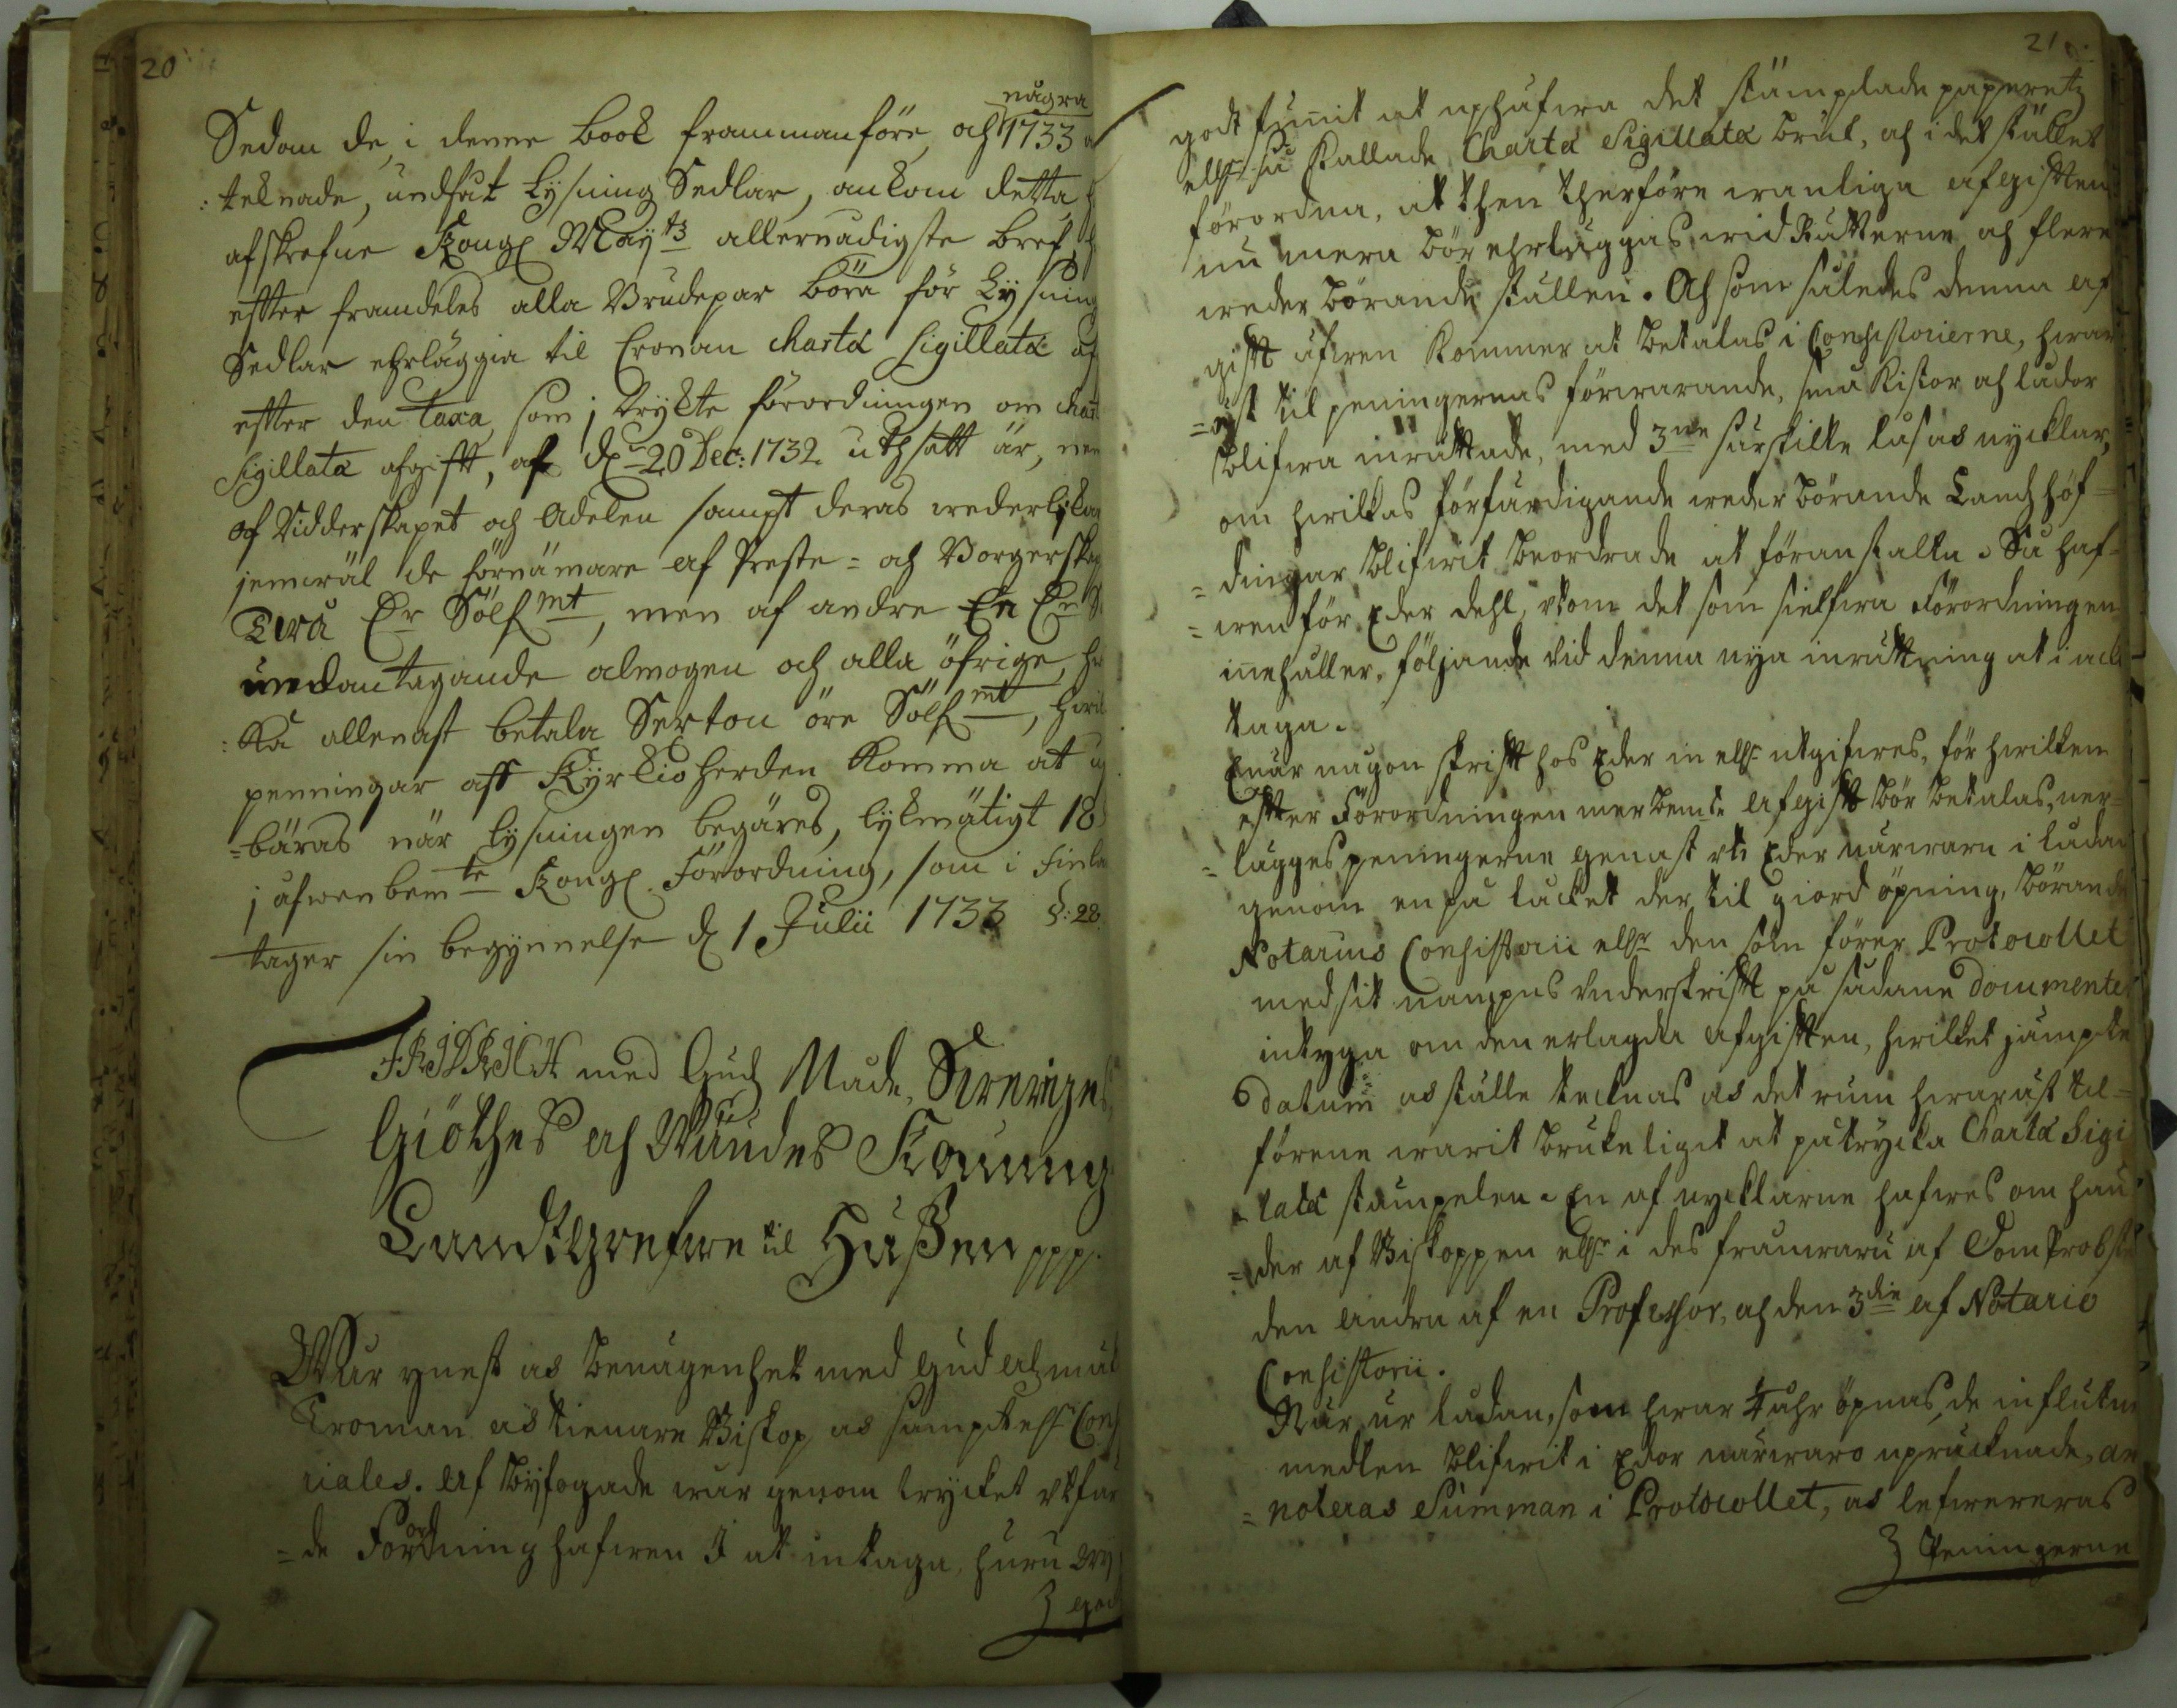 20
några
Sedan de i denne book frammanföre och 1733
:teknade, undfåt Lysning Sedlar, ankom detta
afskrefne Kongl Mayttz allernådigste bref,
efter framdeles alla Brudepar böra för Lysning
Sedlar ehrläggia til Cronan charta Sigillatæ af
efter den taxa, som i Tryckte förordningen om chart
Sigillatæ afgift, af dn 20 Dec: 1732 uthsatt är, nem
af Ridderskapet och Adelen sampt deras wederlikar
jemwäl de förnämare af Preste- och Borgerskap
Twå Dr Sölfmt, men af andre En Dr S
undantagande almogen och alla öfrige,
:ka allenast betala Sexton öre Sölfmt, hwil
penningar aff Kyrkioherden komma at up
=bäras när lysningen begäres, lykmätigt 18
i åfwenbemte Kongl Förordning, som i Finla
tager sin begynnelse d 1 Julii 1733 §: 28.
FRIDRICH med Gudz Nåde, Sweriges,
Giöthes och Wändes Konung
Landtgrefwe til Hässen ppp.
Wår ynest och benägenhet med Gud alzmäc
Troman och tienare Biskop och sampteliga Cons
riales. Af byfogade wår genom trycket utfär
or
=de Fordning hafwen I at intaga, huru Wij
god
21.
godt funnit at uphäfwa det stämplade paperetz
eller så kallade Charta Sigillata bruk, och i det stället
förordna, at then therföre wanliga afgiften
nu mera bör ehrläggias wid Rätterne och flere
weder börande ställen. Och som således denna af
gift äfwen kommer at betalas i Consistorierne, hwar
=est til peningernas förwarande, små kistor och lådor
blifwa inrättade, med 3ne särskilte lås och nycklar,
om hwilkas förfärdigande weder börande Landzhöf=
=dingar blifwit beordrade at föranstalta. Så haf=
=wen för Eder dehl, utom det som sielfwa Förordningen
innehåller, följande vid denna nya inrättning at i ack
taga.
När någon skrift hos Eder in eller utgifwes, för hwilken
efter Förordningen merbemte afgift bör betalas, ner=
=lägges peningerne genast uti Eder närwaru i lådan
genom en på locket der til giord öpning, börande
Notarius Consistorii eller den som förer Protocollet
med sit nampns underskrift på sådane documenter
intyga om den erlagda afgiften, hwilket jämpte
datum och ställe tecknas och det rum hwaräst til=
förene warit brukeligit at påtrycka Charta Sigi
=lata stämpelen. En af nycklarne hafwes om hän
=der af Biskoppen eller i des frånwaru af Dom Probst
den andra af en Professor, och den 3die af Notario
Consistorii.
När ur lådan, som hwar 4 åhr öpnas, de influtne
medlen blifwit i Edor närwaro upräcknade, an
=noteras Summan i Protocollet, och lefwereras
Peningerne